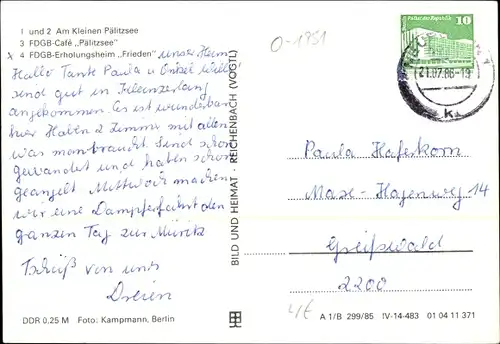 1 und 2 Am Kleinen Pälitzsee
3 FDGB-Café „Pälitzsee"
x 4 FDGB-Erholungsheim „Frieden" unser Heim
Hallo Tante Paula u Onkel Willi
send gut in Kleenzerlang
angekommen. Es ist wunderbar
hier Haben 2 Zimmer mit allen
was man braucht. Send schon
gewandert und haben schon
geangelt Mittwoch machen
wir eine Dampferfahrt den
ganzen Tag zur Müritz
Tschüß von uns
Dreien
DDR 0.25 M Foto: Kampmann, Berlin
BILD UND HEIMAT · REICHENBACH (VOGTL)
O-1951
Palast der Republik
10
DDR
21.07.86-19
Paula Haferkorn
Max-Hagenweg 14
Greifswald
2200
4€
A 1/B 299/85 IV-14-483 01 04 11 371